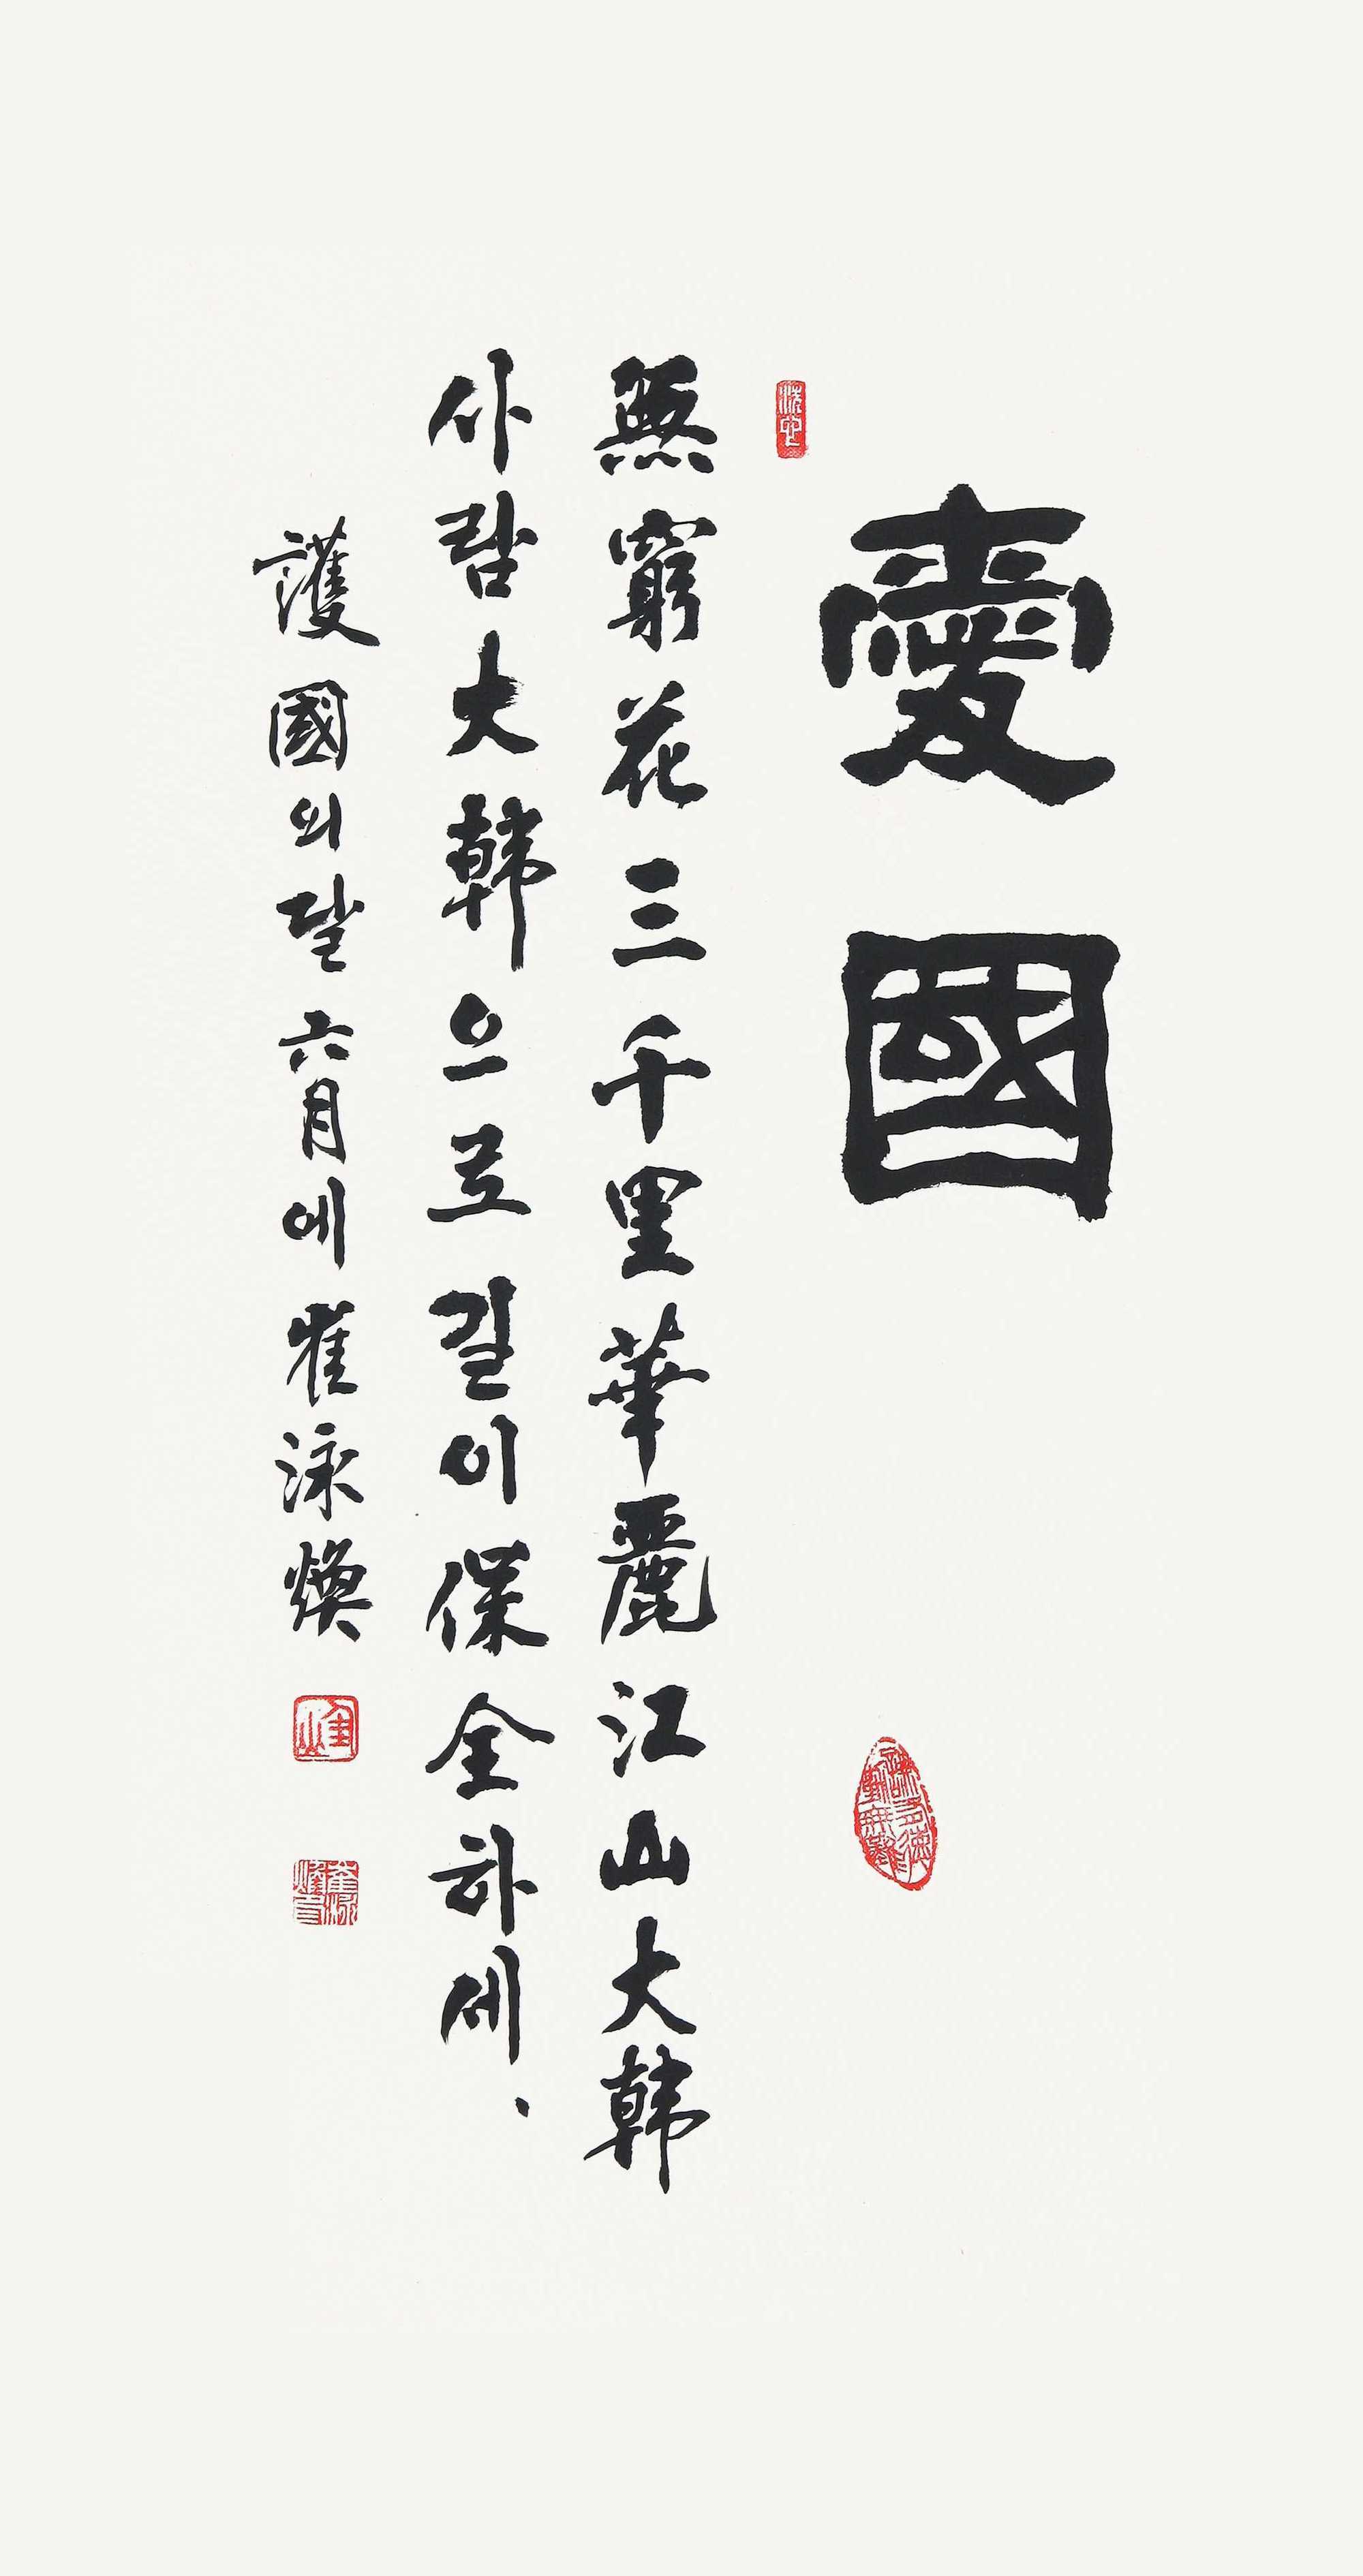 愛國
無窮花三千里華麗江山大韓
사람大韓으로길이保全하세.
護國의달六月에崔泳煥